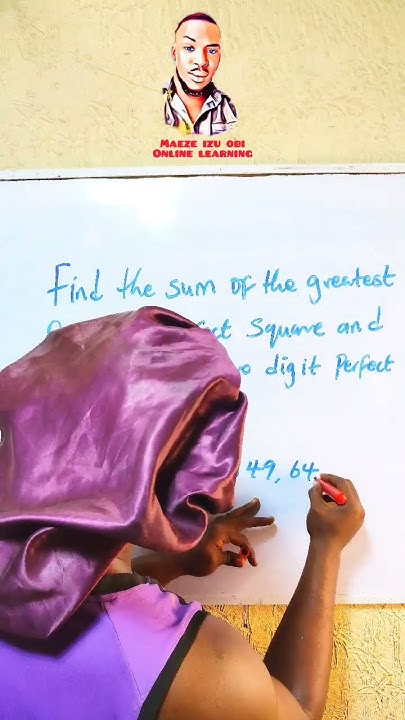 MAEZE IZU OBI
ONLINE LEARNING
Find the sum of the greatest
Square and
digit Perfect
49, 64